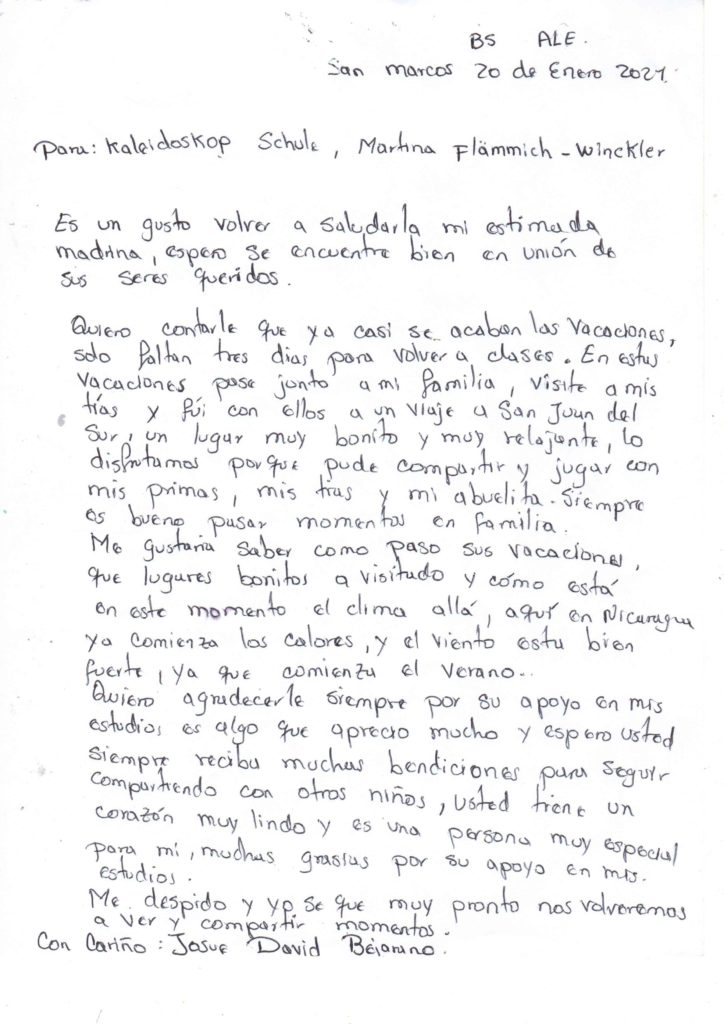 BS ALE.
San marcos 20 de Enero 2021.
Para: Kaleidoskop Schule, Martina Flämmich - Winckler
Es un gusto volver a saludarla mi estimada
madrina, espero se encuentre bien en unión de
sus seres queridos.
Quiero contarle que ya casi se acaban las vacaciones,
solo faltan tres dias para volver a clases. En estas
vacaciones pase junto a mi familia, visite a mis
tías y fúi con ellos a un viaje a San Juan del
Sur, un lugar muy bonito y muy relajante, lo
disfrutamos porque pude compartir y jugar con
mis primas, mis tias y mi abuelita. Siempre
es bueno pasar momentos en familia.
Me gustaria saber como paso sus vacaciones,
que lugares bonitos a visitado y cómo está
en este momento el clima allá, aquí en Nicaragua
ya comienza los calores, y el viento esta bien
fuerte, ya que comienza el verano..
Quiero agradecerle siempre por su apoyo en mis
estudios es algo que aprecio mucho y espero usted
siempre reciba muchas bendiciones para seguir
compartiendo con otros niños, usted tiene un
corazón muy lindo y es una persona muy especial
para mi, muchas grasias por su apoyo en mis.
estudios.
Me despido y yo se que muy pronto nos volveremos
a ver y compartir momentos.
Con Cariño: Josue David Bejarano.